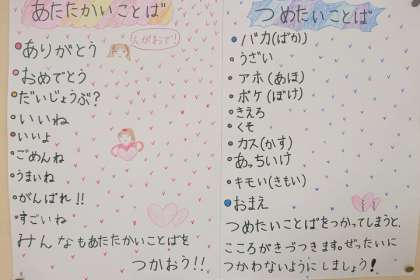 あたたかいことば
えがおで!
ありがとう
おめでとう
だいじょうぶ?
いいね
いいよ
ごめんね
うまいね
がんばれ!!
すごいね
みんなもあたたかいことばを
つかおう!!
つめたいことば
バカ(ばか)
うざい
アホ(あほ)
ボケ(ぼけ)
きえろ
くそ
カス(かす)
あっちいけ
キモい(きもい)
おまえ
つめたいことばをつかってしまうと、
こころがきづつきます。ぜったいに
つかわないようにしましょう!